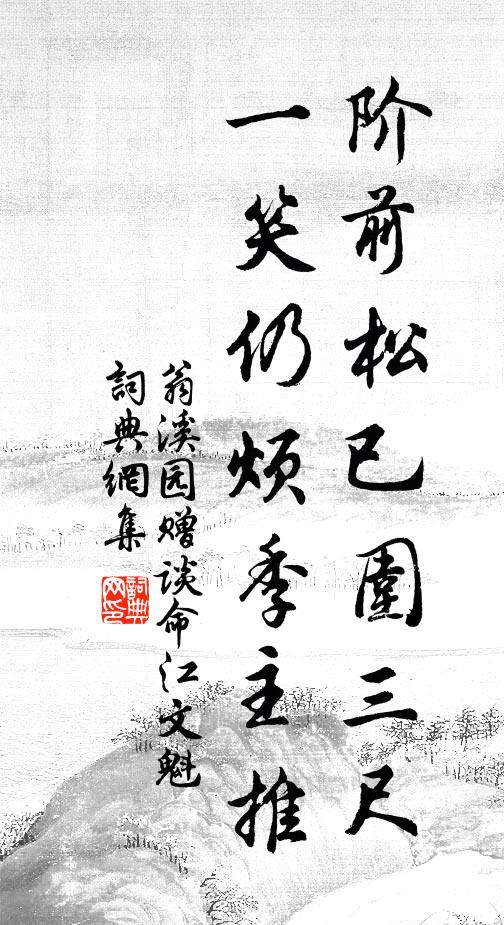 阶前松已围三尺
一笑仍烦季主推
翁溪园赠谈命江文魁
詞典網集
詞典網印